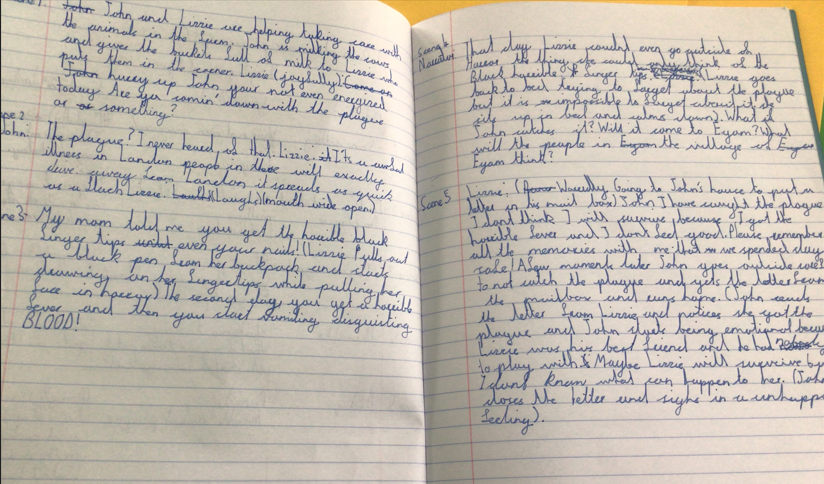 John and Lizzie are helping taking care with
the animals in the farm. John is milking the cows
and gives the buckets full of milk to Lizzie who
put them in the corner. Lizzie (joyfully): Come on
John hurry up John your not even energized
today! Are you comin' down with the plague
or something?
John: The plague? I never heard of that Lizzie. It's a awful
illness in London people in will exactly,
away from London it spreads as quick
as a Lizzie. (Laughs)(mouth wide open)
My mom told me you get the horible black
finger tips until even your nails! (Lizzie pulls out
a black pen from her backpack and starts
drawing on her fingertips while pulling her
face in horror) The second day you get a horrible
fever and then you start vomiting disguisting
BLOOD!
Scene 4
Narrator: That day Lizzie couldn't even go outside of
the thing she could only think of the
Black horrible finger tips. Lizzie goes
back to bed trying to forget about the plague
but it is impossible to forget about it, she
sits up in bed and calms down). What if
John catches it? Will it come to Eyam? What
will the people in Eyam the village of
Eyam think?
Scene 5
Lizzie: (Going to John's house to put a
letter in his mail box) John I have caught the plague
I dont think I will survive because I got the
horible fever and I don't feel good. Please remember
all the memories with me that we spended stay
safe! A few moments later John goes outside
to not catch the plague and gets the letter from
the mailbox and runs home. (John reads
the letter from Lizzie and notices she got the
plague and John starts being emotional
Lizzie was his best friend and he had nobody
to play with. Maybe Lizzie will survive
I dont know what can happen to her. (John
closes the letter and sighs in a
feeling).